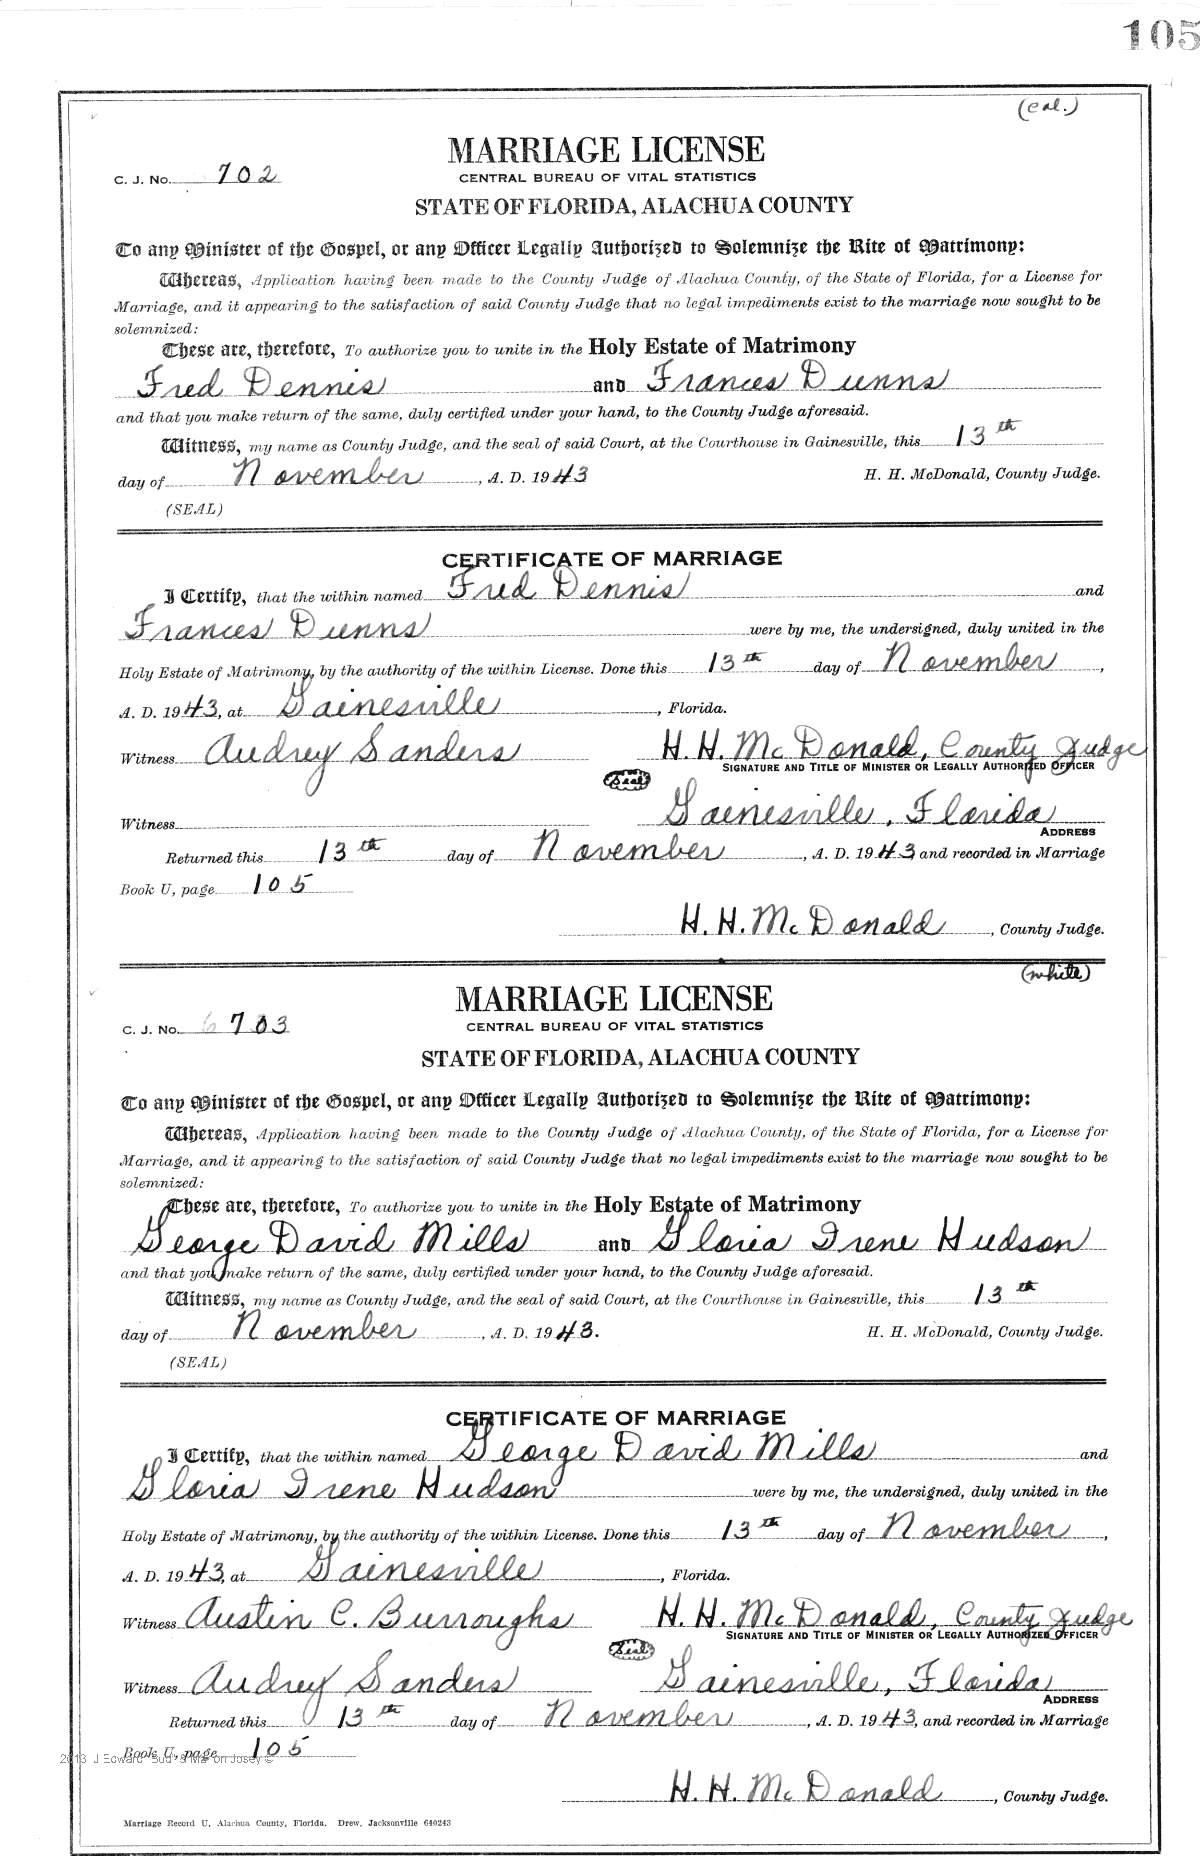 105
(col.)
MARRIAGE LICENSE
C. J. No. 702
CENTRAL BUREAU OF VITAL STATISTICS
STATE OF FLORIDA, ALACHUA COUNTY
To any Minister of the Gospel, or any Officer Legally Authorized to Solemnize the Rite of Matrimony:
Whereas, Application having been made to the County Judge of Alachua County, of the State of Florida, for a License for
Marriage, and it appearing to the satisfaction of said County Judge that no legal impediments exist to the marriage now sought to be
solemnized:
These are, therefore, To authorize you to unite in the Holy Estate of Matrimony
Fred Dennis and Frances Dunns
and that you make return of the same, duly certified under your hand, to the County Judge aforesaid.
Witness, my name as County Judge, and the seal of said Court, at the Courthouse in Gainesville, this 13th
day of November, A. D. 1943 H. H. McDonald, County Judge.
(SEAL)
CERTIFICATE OF MARRIAGE
I Certify, that the within named Fred Dennis and
Frances Dunns were by me, the undersigned, duly united in the
Holy Estate of Matrimony, by the authority of the within License. Done this 13th day of November,
A. D. 1943, at Gainesville, Florida.
Witness Audrey Sanders H. H. McDonald, County Judge
SIGNATURE AND TITLE OF MINISTER OR LEGALLY AUTHORIZED OFFICER
Seal
Witness Gainesville, Florida
ADDRESS
Returned this 13th day of November, A. D. 1943 and recorded in Marriage
Book U, page 105
H. H. McDonald, County Judge.
(white)
MARRIAGE LICENSE
C. J. No. 703
CENTRAL BUREAU OF VITAL STATISTICS
STATE OF FLORIDA, ALACHUA COUNTY
To any Minister of the Gospel, or any Officer Legally Authorized to Solemnize the Rite of Matrimony:
Whereas, Application having been made to the County Judge of Alachua County, of the State of Florida, for a License for
Marriage, and it appearing to the satisfaction of said County Judge that no legal impediments exist to the marriage now sought to be
solemnized:
These are, therefore, To authorize you to unite in the Holy Estate of Matrimony
George David Mills and Gloria Irene Hudson
and that you make return of the same, duly certified under your hand, to the County Judge aforesaid.
Witness, my name as County Judge, and the seal of said Court, at the Courthouse in Gainesville, this 13th
day of November, A. D. 1943. H. H. McDonald, County Judge.
(SEAL)
CERTIFICATE OF MARRIAGE
I Certify, that the within named George David Mills and
Gloria Irene Hudson were by me, the undersigned, duly united in the
Holy Estate of Matrimony, by the authority of the within License. Done this 13th day of November,
A. D. 1943, at Gainesville, Florida.
Witness Austin C. Burroughs H. H. McDonald, County Judge
SIGNATURE AND TITLE OF MINISTER OR LEGALLY AUTHORIZED OFFICER
Seal
Witness Audrey Sanders Gainesville, Florida
ADDRESS
Returned this 13th day of November, A. D. 1943, and recorded in Marriage
Book U, page 105
2013 J Edward "Bud" & Marion Josey ©
H. H. McDonald, County Judge.
Marriage Record U, Alachua County, Florida. Drew, Jacksonville 640243